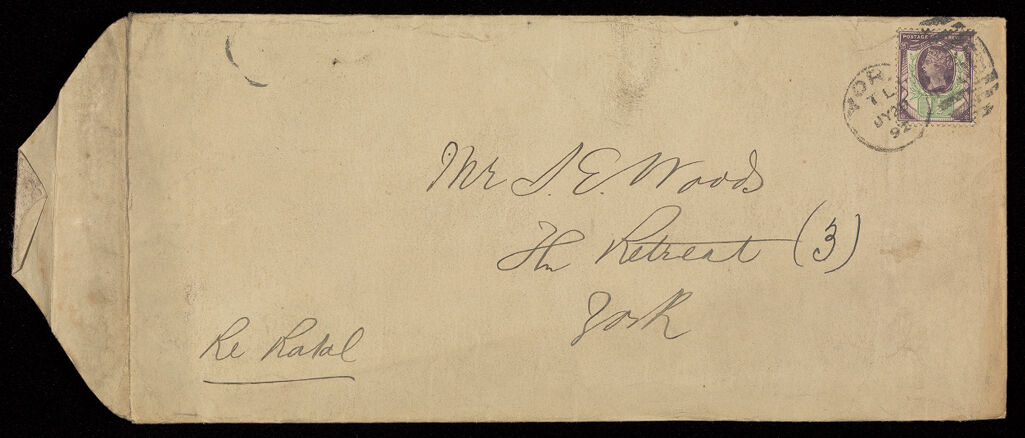 POSTAGE
YORK
JY 2
92
Mr S. E. Woods
The Retreat (3)
York
Re